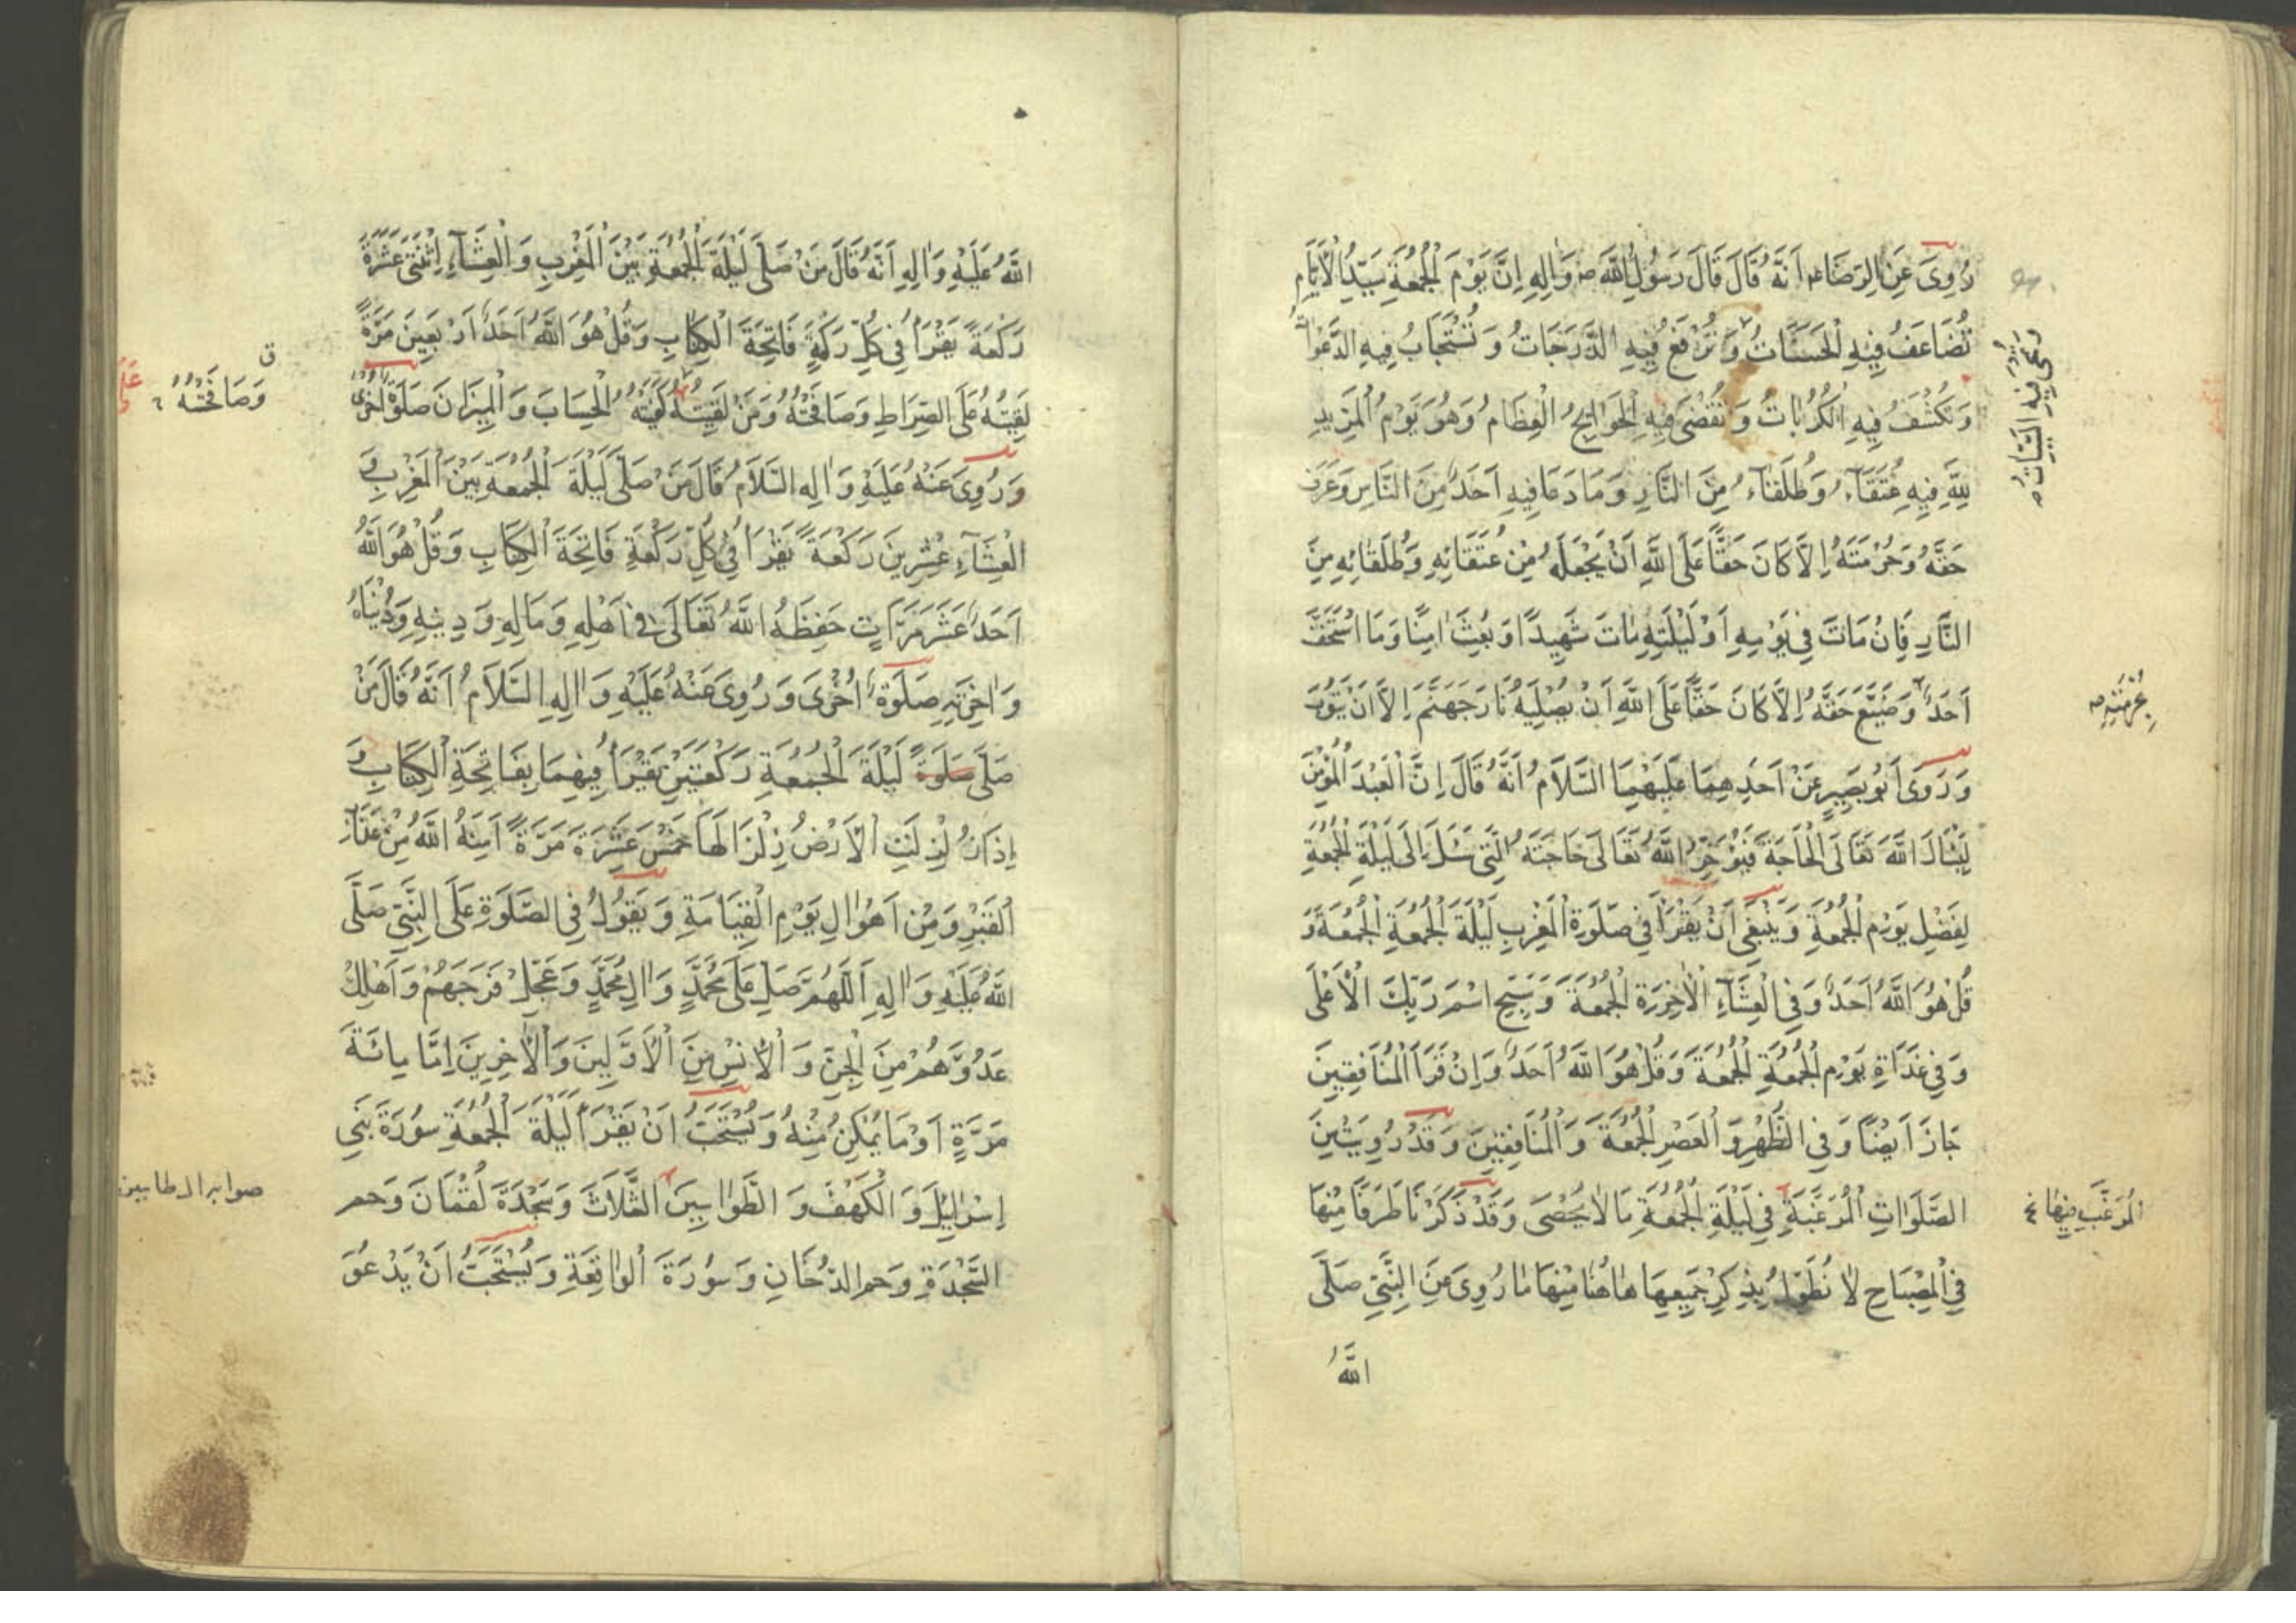 رُوِىَ عَنِ الرِضَاءم اَنَّهُ قَالَ قَالَ رَسُولُ اللَّهِ ص وَالِهِ اِنَّ يَوْمَ الْجُمُعَةِ سَيِّدُ الْاَيَّامِ
تُضَاعَفُ فِيهِ الْحَسَنَاتُ وَ تُرْفَعُ فِيهِ الدَّرَجَاتُ وَ تُسْتَجَابُ فِيهِ الدَّعَوَاتُ
وَتُمْحٰى فِيهِ السَّيِّئَاتُ
وَ تُكْشَفُ فِيهِ الْكُرُبَاتُ وَ تُقْضَى فِيهِ الْحَوَائِجُ الْعِظَامُ وَهُوَ يَوْمُ الْمَزِيدِ
لِلّٰهِ فِيهِ عُتَقَآءُ وَ طُلَقَاءُ مِنَ النَّارِ وَ مَا دَعَا فِيهِ اَحَدٌ مِنَ النَّاسِ وَعَرَفَ
حَقَّهُ وَحُرْمَتَهُ اِلَّا كَانَ حَقًّا عَلَى اللَّهِ اَنْ يَجْعَلَهُ مِنْ عُتَقَائِهِ وَ طُلَقَائِهِ مِنَ
النَّارِ فَاِنْ مَاتَ فِي يَوْمِهِ اَوْ لَيْلَتِهِ مَاتَ شَهِيدًا وَ بُعِثَ اٰمِنًا وَ مَا اسْتَخَفَّ
اَحَدٌ وَ ضَيَّعَ حَقَّهُ اِلَّا كَانَ حَقًّا عَلَى اللَّهِ اَنْ يُصْلِيَهُ نَارَ جَهَنَّمَ اِلَّا اَنْ يَتُوبَ
بِحُرْمَتِهِ ص
وَ رَوَى اَبُو بَصِيرٍ عَنْ اَحَدِهِمَا عَلَيْهِمَا السَّلَامُ اَنَّهُ قَالَ اِنَّ الْعَبْدَ الْمُؤْمِنَ
لَيَسْاَلُ اللَّهَ تَعَالَى الْحَاجَةَ فَيُؤَخِّرُ اللَّهُ تَعَالَى حَاجَتَهُ الَّتِي سَئَلَ اِلَى لَيْلَةِ الْجُمُعَةِ
لِفَضْلِ يَوْمِ الْجُمُعَةِ وَ يَنْبَغِى اَنْ يَقْرَاَ فِي صَلَوةِ الْمَغْرِبِ لَيْلَةَ الْجُمُعَةِ الْجُمُعَةَ وَ
قُلْ هُوَ اللَّهُ اَحَدٌ وَ فِي الْعِشَآءِ الْاٰخِرَةِ الْجُمُعَةَ وَ سَبِّحِ اسْمَ رَبِّكَ الْاَعْلَى
وَ فِي غَدَاةِ يَوْمِ الْجُمُعَةِ الْجُمُعَةَ وَ قُلْ هُوَ اللَّهُ اَحَدٌ وَ اِنْ قَرَاَ الْمُنَافِقِينَ
جَازَ اَيْضًا وَ فِي الظُّهْرِ وَ الْعَصْرِ الْجُمُعَةَ وَ الْمُنَافِقِينَ وَ قَدْ رُوِىَ مِنَ
الصَّلَوَاتِ الْمُرَغَّبَةِ فِي لَيْلَةِ الْجُمُعَةِ مَا لَا يُحْصَى وَ قَدْ ذَكَرْنَا طَرَفًا مِنْهَا
الْمُرَغَّبِ فِيهَا
فِي الْمِصْبَاحِ لَا نُطَوِّلُ بِذِكْرِ جَمِيعِهَا هَاهُنَا مِنْهَا مَا رُوِىَ عَنِ النَّبِيِّ صَلَّى
اللَّهُ
اللَّهُ عَلَيْهِ وَ الِهِ اَنَّهُ قَالَ مَنْ صَلَّى لَيْلَةَ الْجُمُعَةِ بَيْنَ الْمَغْرِبِ وَ الْعِشَآءِ اِثْنَتَىْ عَشْرَةَ
رَكْعَةً يَقْرَاُ فِي كُلِّ رَكْعَةٍ فَاتِحَةَ الْكِتَابِ وَ قُلْ هُوَ اللَّهُ اَحَدٌ اَرْبَعِينَ مَرَّةً
لَقِيتُهُ عَلَى الصِّرَاطِ وَ صَافَحْتُهُ وَ مَنْ لَقِيتُهُ كَفَيْتُهُ الْحِسَابَ وَ الْمِيزَانَ صَلَوةٌ اُخْرَى
ق
وَصَافَحْتُهُ
وَ رُوِىَ عَنْهُ عَلَيْهِ وَ الِهِ السَّلَامُ قَالَ مَنْ صَلَّى لَيْلَةَ الْجُمُعَةِ بَيْنَ الْمَغْرِبِ وَ
الْعِشَآءِ عِشْرِينَ رَكْعَةً يَقْرَاُ فِي كُلِّ رَكْعَةٍ فَاتِحَةَ الْكِتَابِ وَ قُلْ هُوَ اللَّهُ
اَحَدٌ عَشْرَ مَرَّاتٍ حَفِظَهُ اللَّهُ تَعَالَى فِي اَهْلِهِ وَ مَالِهِ وَ دِينِهِ وَ دُنْيَاهُ
وَ اٰخِرَتِهِ صَلَوةٌ اُخْرَى وَ رُوِىَ عَنْهُ عَلَيْهِ وَ الِهِ السَّلَامُ اَنَّهُ قَالَ مَنْ
صَلَّى صَلَوةً لَيْلَةَ الْجُمُعَةِ رَكْعَتَيْنِ يَقْرَاُ فِيهِمَا بِفَاتِحَةِ الْكِتَابِ وَ
اِذَا زُلْزِلَتِ الْاَرْضُ زِلْزَالَهَا خَمْسَ عَشْرَةَ مَرَّةً اٰمَنَهُ اللَّهُ مِنْ عَذَابِ
الْقَبْرِ وَ مِنْ اَهْوَالِ يَوْمِ الْقِيَامَةِ وَ يَقُولُ فِي الصَّلَوةِ عَلَى النَّبِيِّ صَلَّى
اللَّهُ عَلَيْهِ وَ الِهِ اَللّٰهُمَّ صَلِّ عَلَى مُحَمَّدٍ وَ الِ مُحَمَّدٍ وَ عَجِّلْ فَرَجَهُمْ وَ اَهْلِكْ
عَدُوَّهُمْ مِنَ الْجِنِّ وَ الْاِنْسِ مِنَ الْاَوَّلِينَ وَ الْاٰخِرِينَ اِمَّا مِائَةَ
مَرَّةٍ اَوْ مَا يُمْكِنُ مِنْهُ وَ يُسْتَحَبُّ اَنْ يَقْرَاَ لَيْلَةَ الْجُمُعَةِ سُورَةَ بَنِي
اِسْرَائِيلَ وَ الْكَهْفَ وَ الطَّوَاسِينَ الثَّلَاثَ وَ سَجْدَةَ لُقْمَانَ وَ حم
السَّجْدَةِ وَ حم الدُّخَانِ وَ سُورَةَ الْوَاقِعَةِ وَ يُسْتَحَبُّ اَنْ يَدْعُوَ